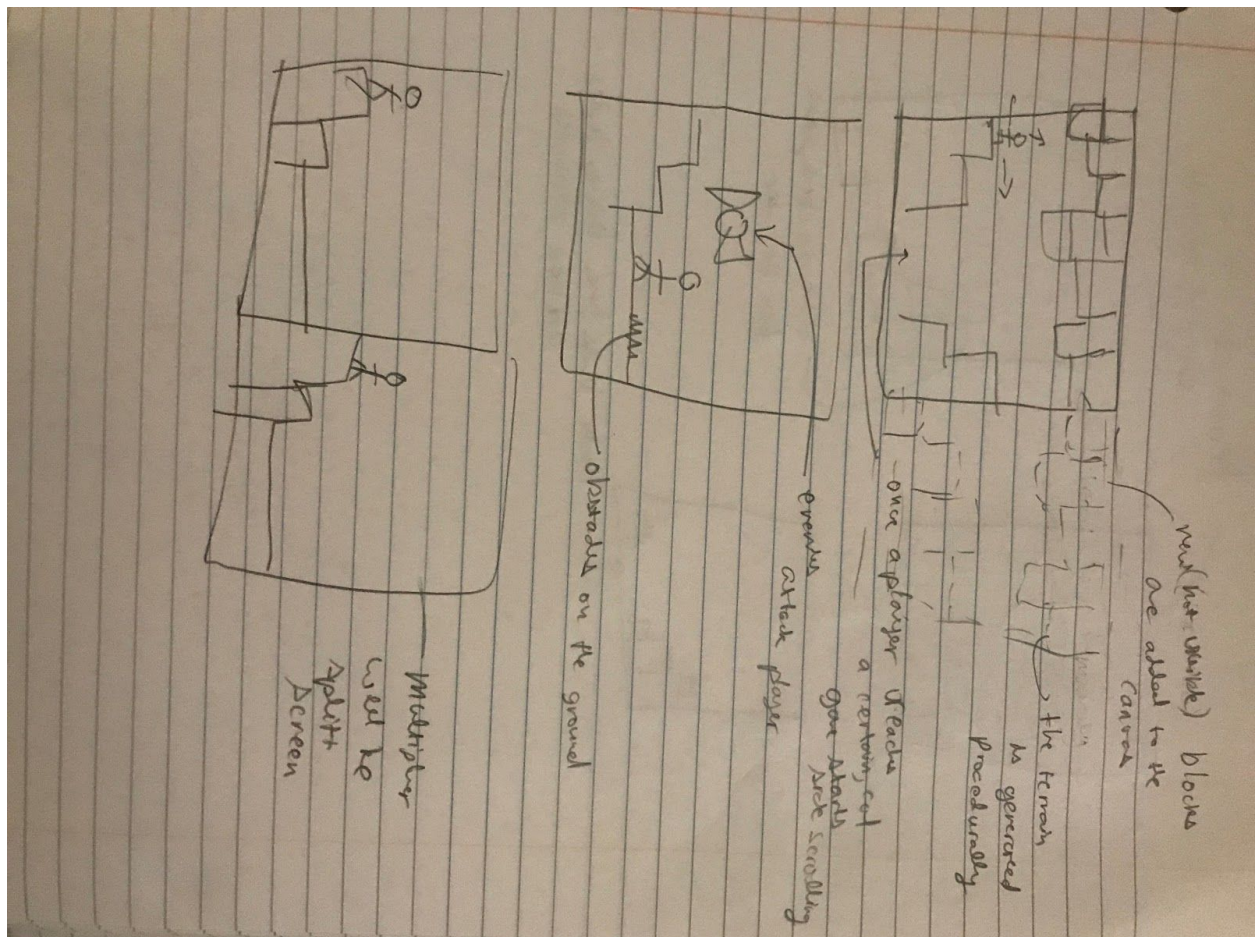 new (not visible) blocks
are added to the
canvas
the terrain
is generated
procedurally
- once a player reaches
a certain, col
game starts
side scrolling
enemies
attack player
obstacles on the ground
Multiplayer
will be
split
screen